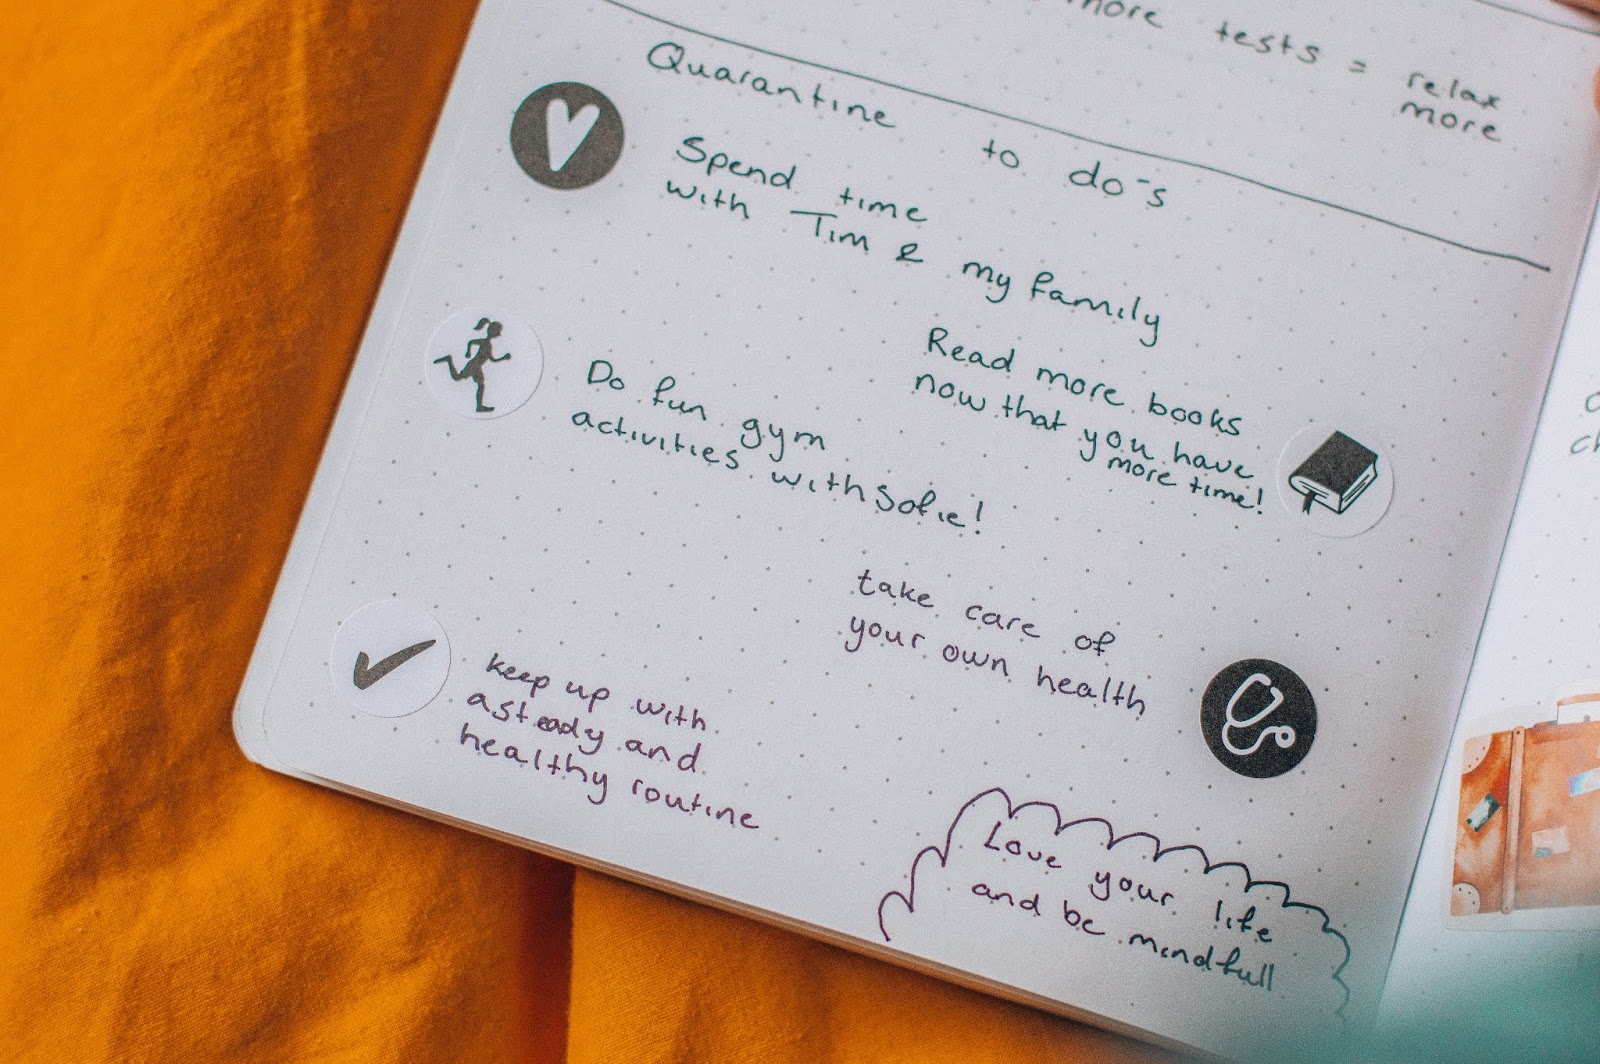 more tests = relax
more
Quarantine to do-s
Spend time
with Tim & my family
Read more books
now that you have
more time!
Do fun gym
activities with Sofie!
take care of
your own health
keep up with
a steady and
healthy routine
Love your life
and be mindfull